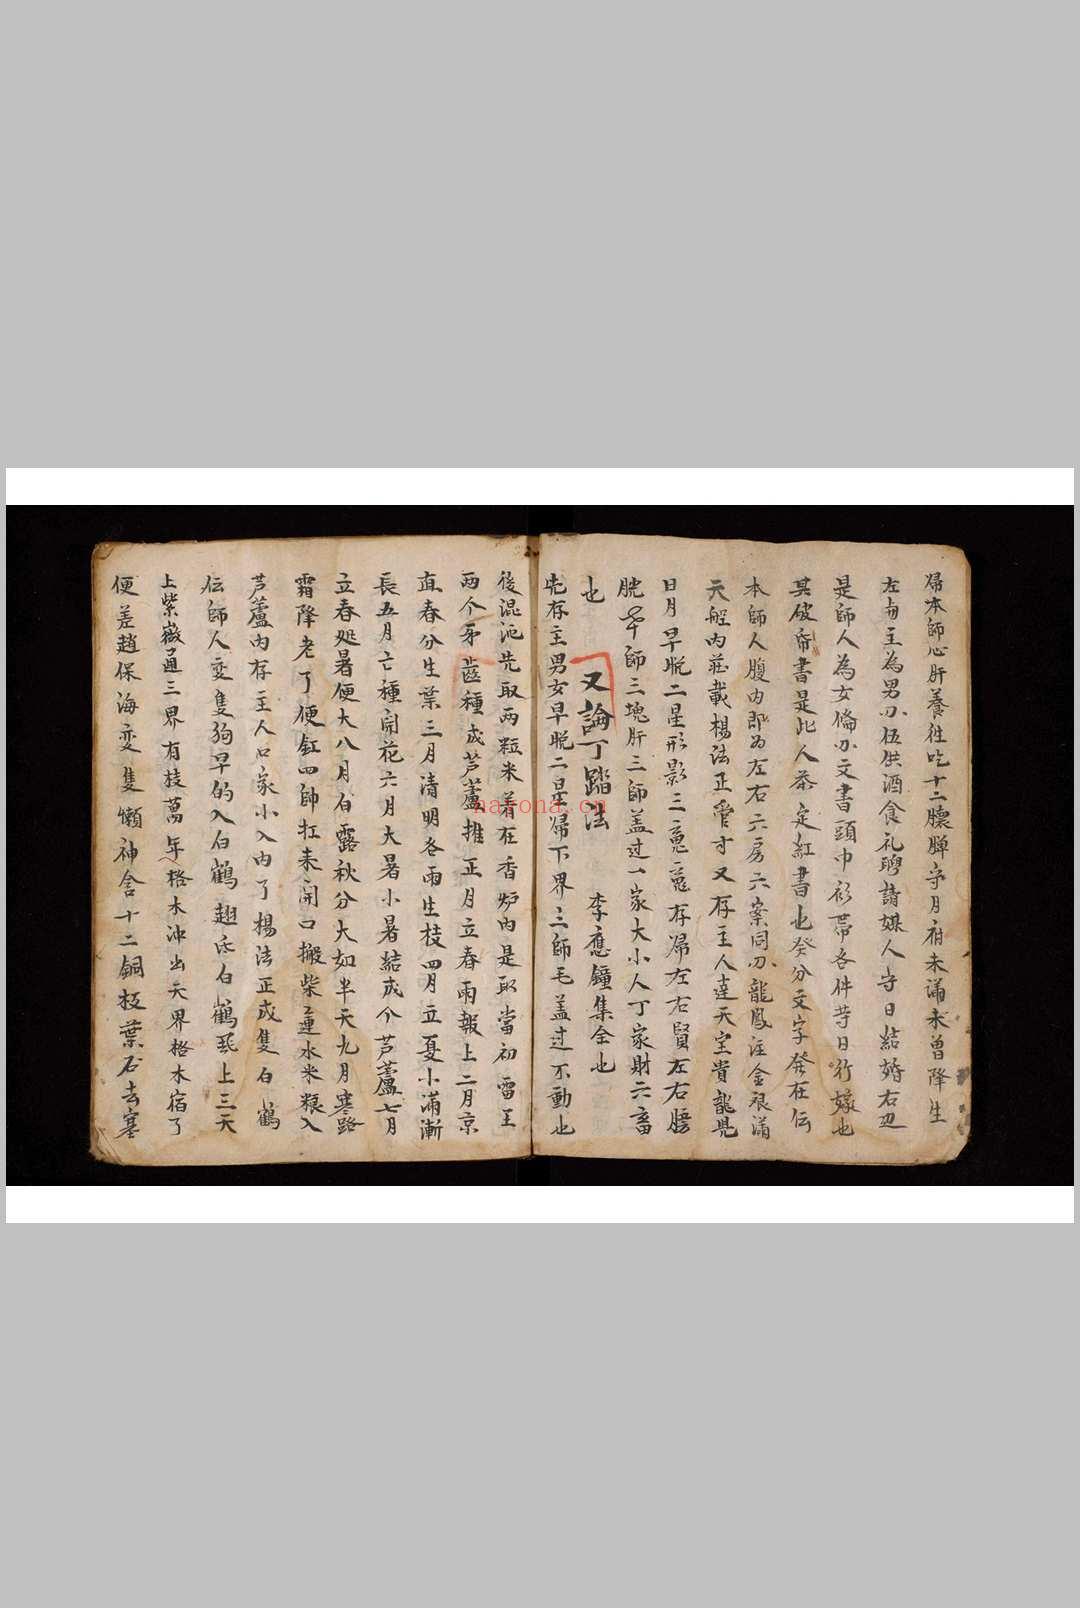 歸本師心肝養往吃十二臁胂守月府未滿未曾降生
左甶主為男刅伍供酒食礼聘請媒人守日結婚右边
是師人為女俻刅文書頭巾衫帶各件苛日行嫁也
其破帋書是此人茶定紅書也癸分文字發在伝
本師人腹内即为左右六房六案同刅龍鳳注金艮滿
天舩内莊載楊法正管寸又存主人達天宝貴龍凳
日月早脫二星形影三䰟䰟存歸左右賢左右腰
脫半師三塊肝三師盖过一家大小人丁家財六畜
也
又論丁踏法
李應鐘集全也
先存主男女早脫二星歸下界三師毛盖过不動也
後混沌先取兩粒米着在香炉内是取當初雷王
兩个牙齒種成芦蘆推正月立春雨報上二月京
直春分生葉三月清明各雨生枝四月立夏小滿漸
長五月亡種開花六月大暑小暑結成个芦蘆七月
立春処暑便大八月白露秋分大如半天九月寒路
霜降老了便釭四帥扛来開口搬柴運水米粮入
芦蘆内存主人口家小入内了楊法正成隻白鶴
伝師人变隻狗早的入白鶴翅氐白鶴飛上三天
上紫微通三界有枝萬年格木沖出天界格木宿了
便差趙保海变隻懶神舍十二銅板葉石去塞
nayona.cn